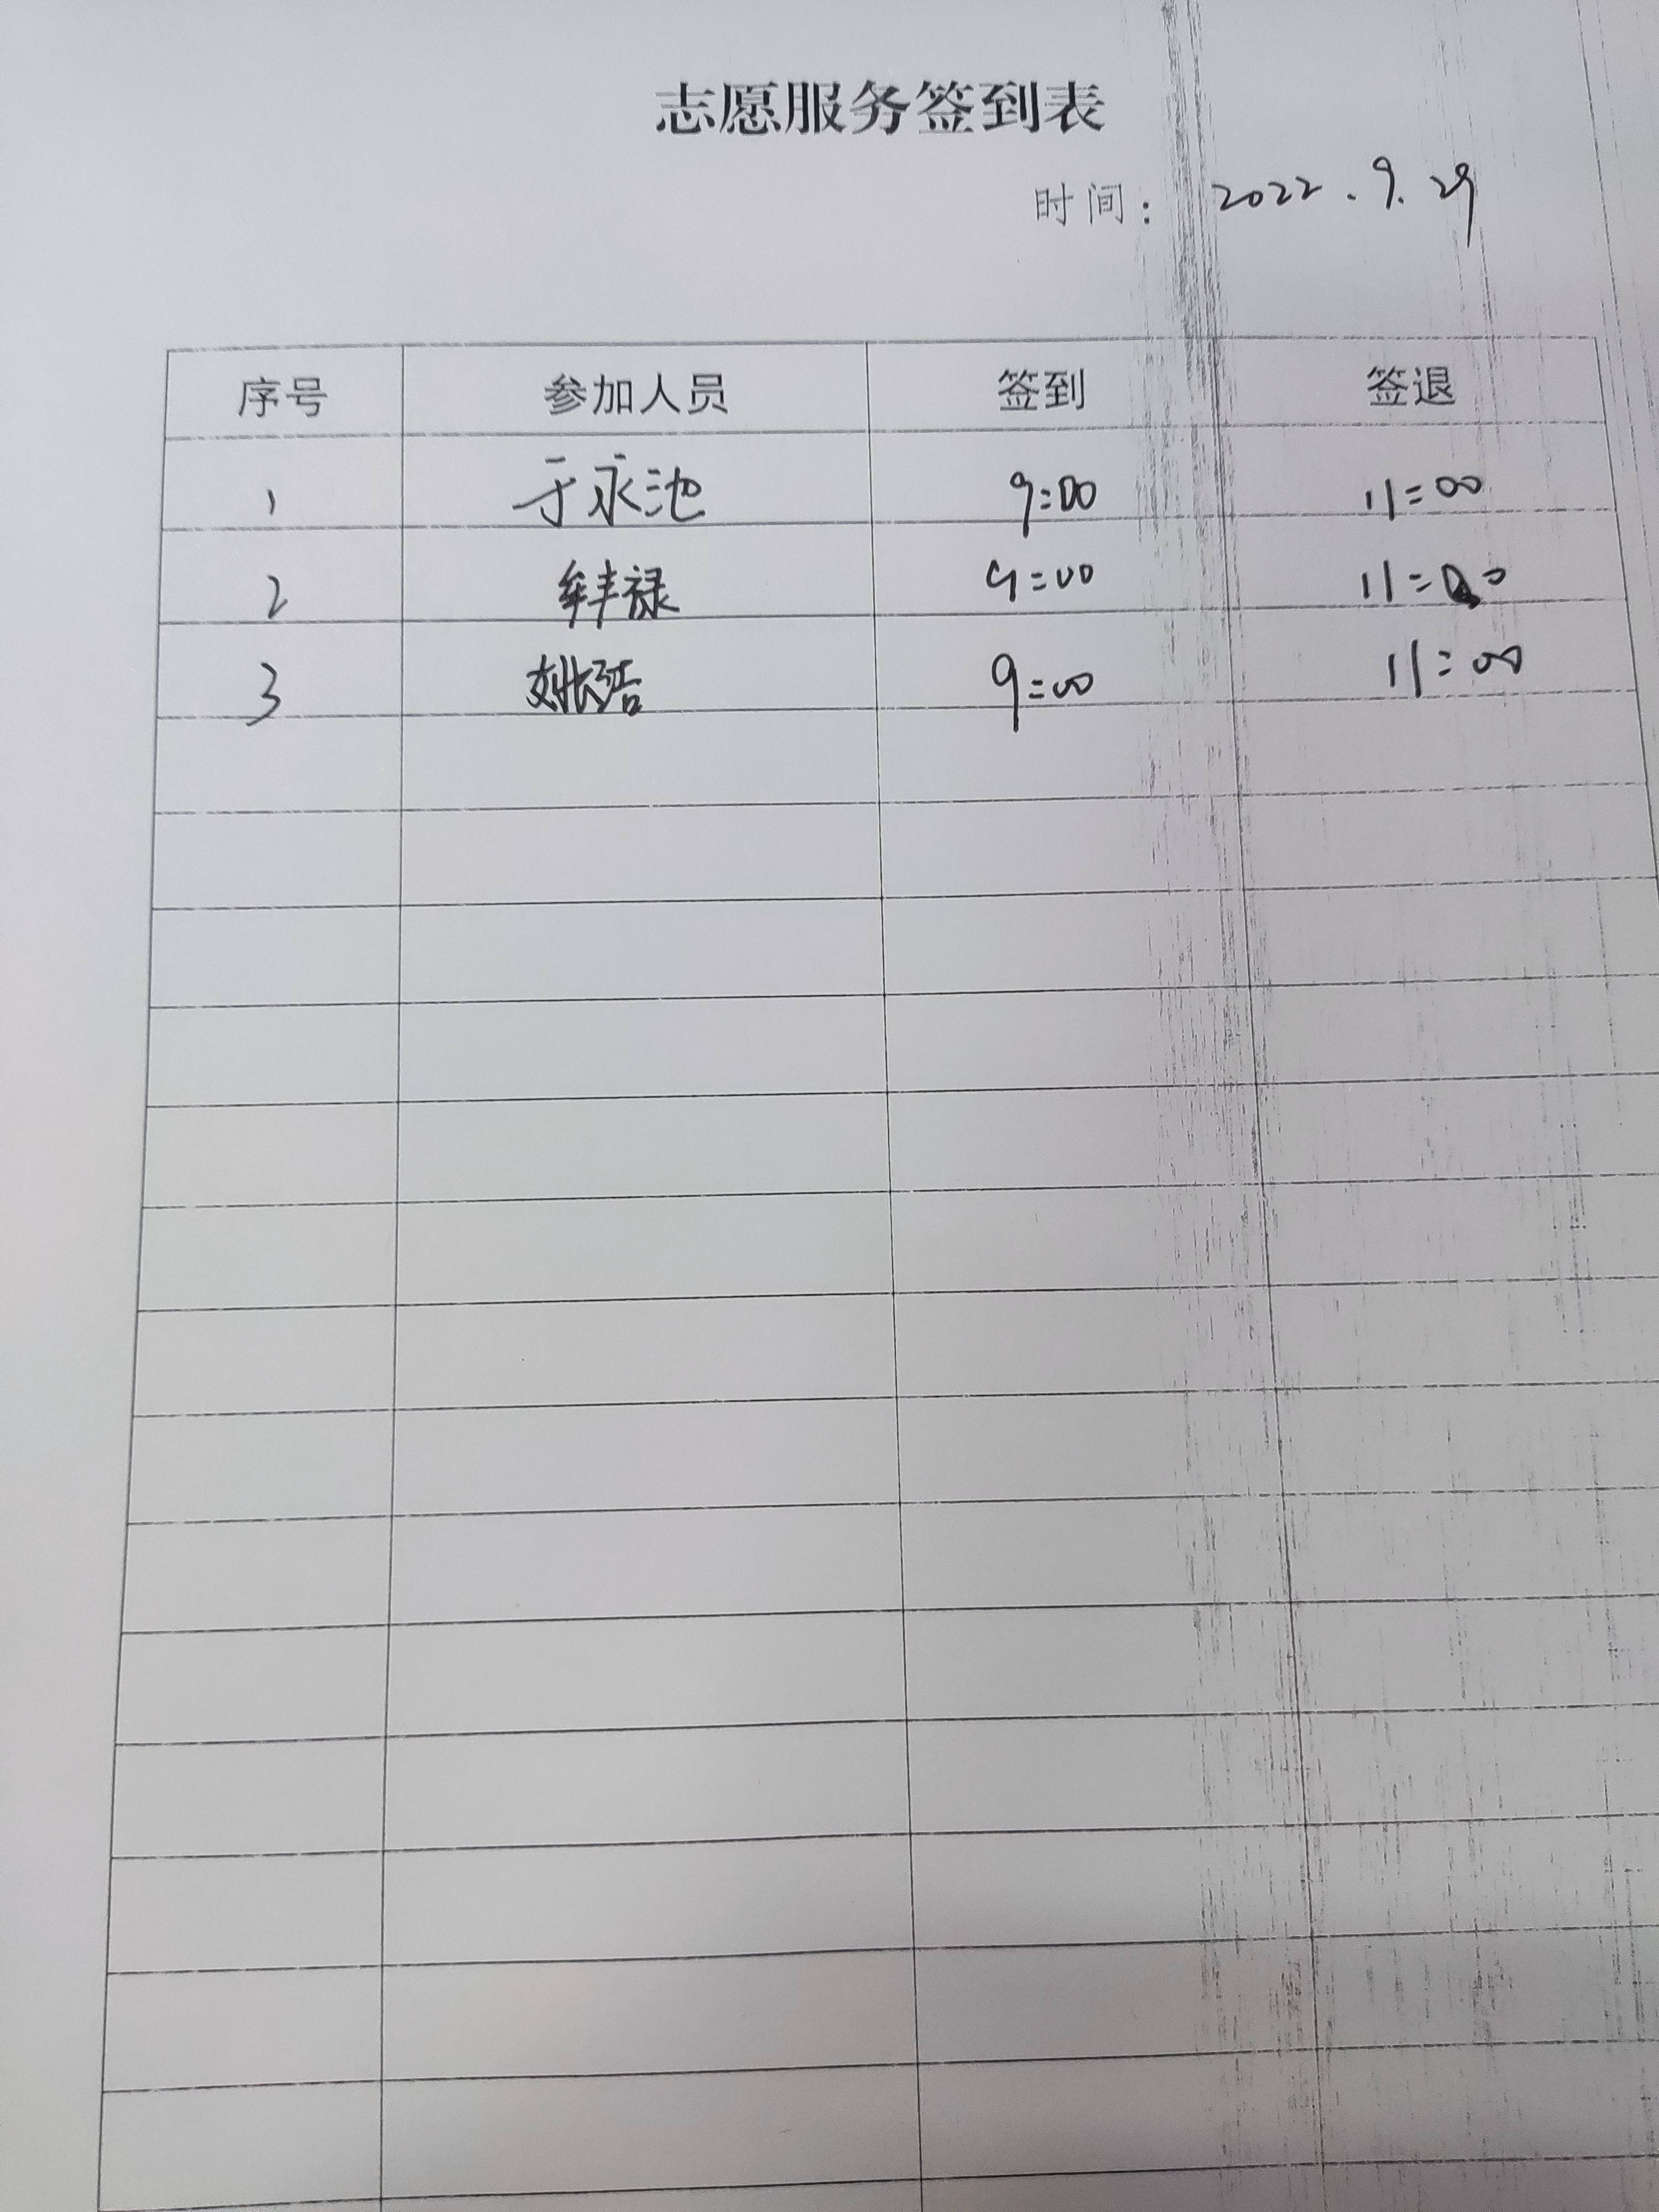 志愿服务签到表
时间: 2022.9.29
序号 参加人员 签到 签退
1 于永池 9:00 11:00
2 牟丰禄 9:00 11:00
3 姚浩 9:00 11:00